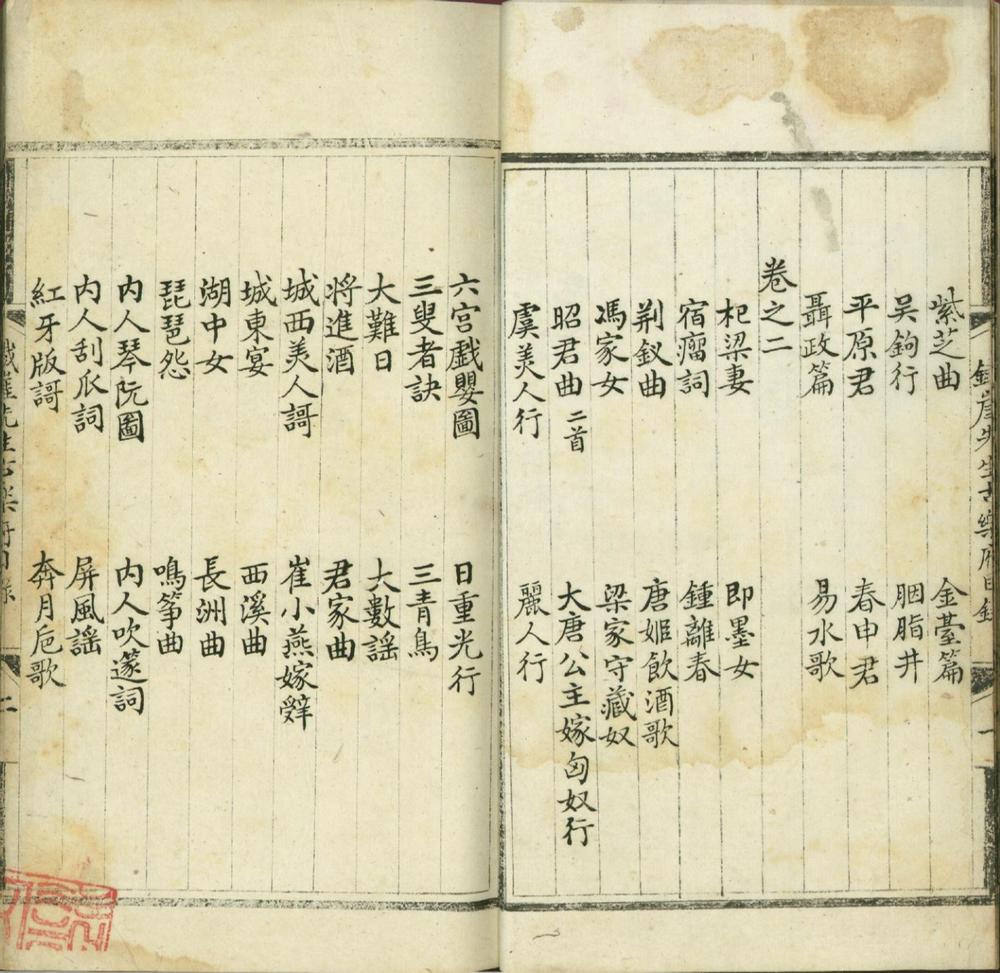 紫芝曲 金臺篇
吴鉤行 胭脂井
平原君 春申君
聶政篇 易水歌
卷之二
杞梁妻 即墨女
宿瘤詞 鍾離春
荆釵曲 唐姬飲酒歌
馮家女 梁家守藏奴
昭君曲二首 大唐公主嫁匈奴行
虞美人行 麗人行
六宫戲嬰圖 日重光行
三叟者訣 三青鳥
大難日 大數謡
将進酒 君家曲
城西美人謌 崔小燕嫁辤
城東宴 西溪曲
湖中女 長洲曲
琵琶怨 鳴筝曲
内人琴阮圖 内人吹篴詞
内人刮爪詞 屏風謡
紅牙版謌 奔月巵歌
鐵崖先生古樂府目錄 一
鐵崖先生古樂府目錄 二